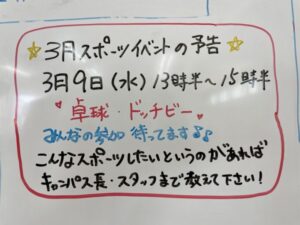 ☆3月スポーツイベントの予告☆
3月9日(水) 13時半~15時半
♥卓球・ドッヂビー♥
みんなの参加 待ってます♪♪
こんなスポーツしたいというのがあれば
キャンパス長・スタッフまで教えて下さい!